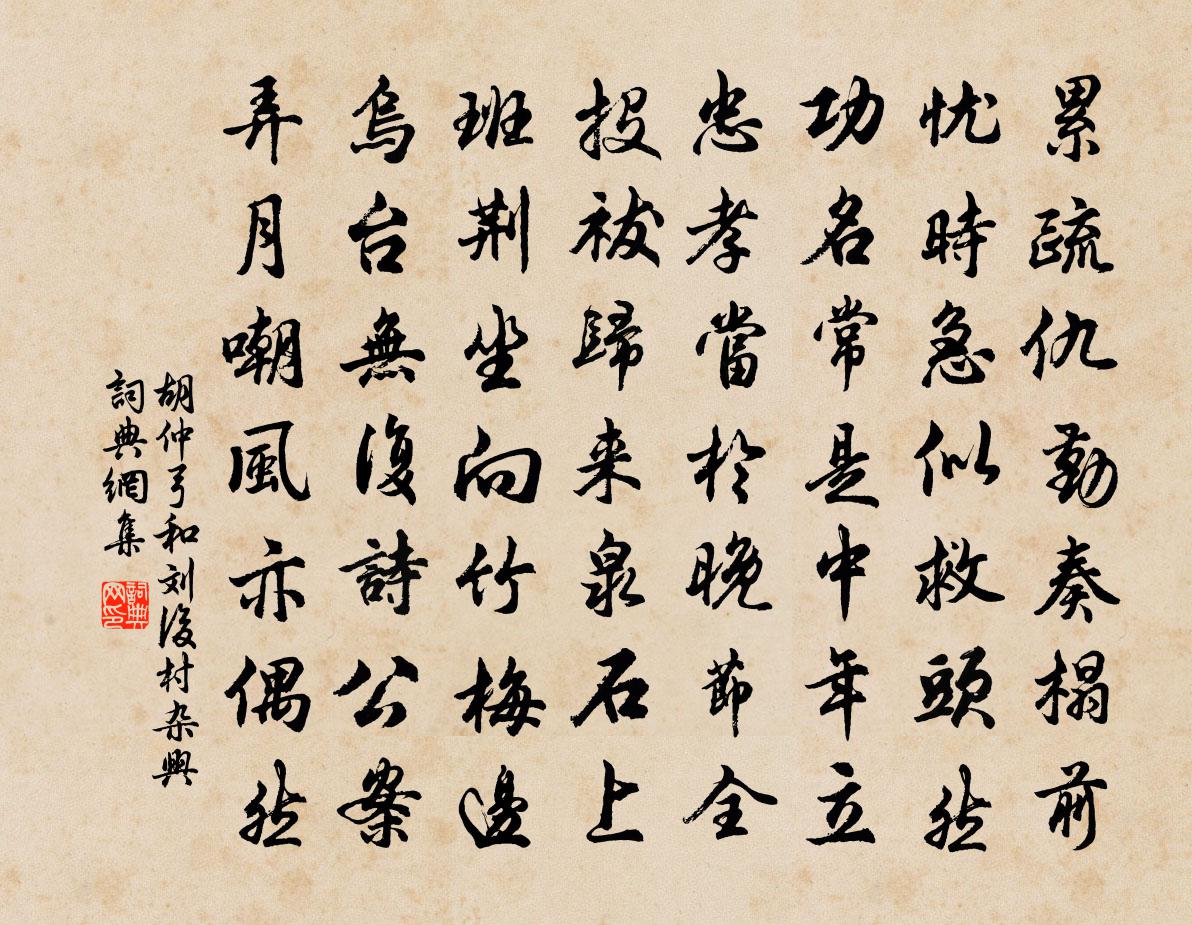 累疏仇勤奏榻前
忧時急似救頭然
功名常是中年立
忠孝當於晚節全
投袚歸来泉石上
班荆坐向竹梅邊
烏台無復詩公案
弄月嘲風亦偶然
胡仲弓和刘後村杂興
詞典網集
詞典网印